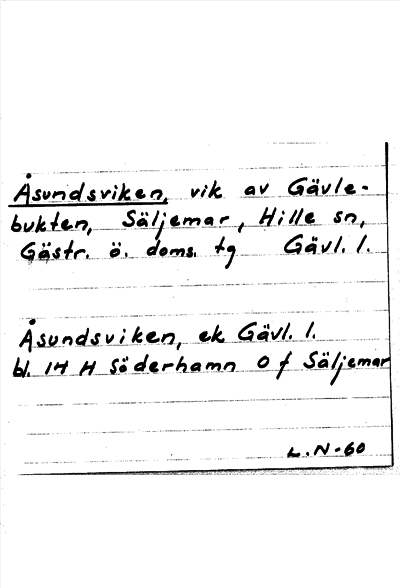 Åsundsviken, vik av Gävle-
bukten, Säljemar, Hille sn,
Gästr. ö. doms. tg Gävl. l.
Åsundsviken, ek Gävl. l.
bl. 14 H Söderhamn O f Säljemar
L.N-60